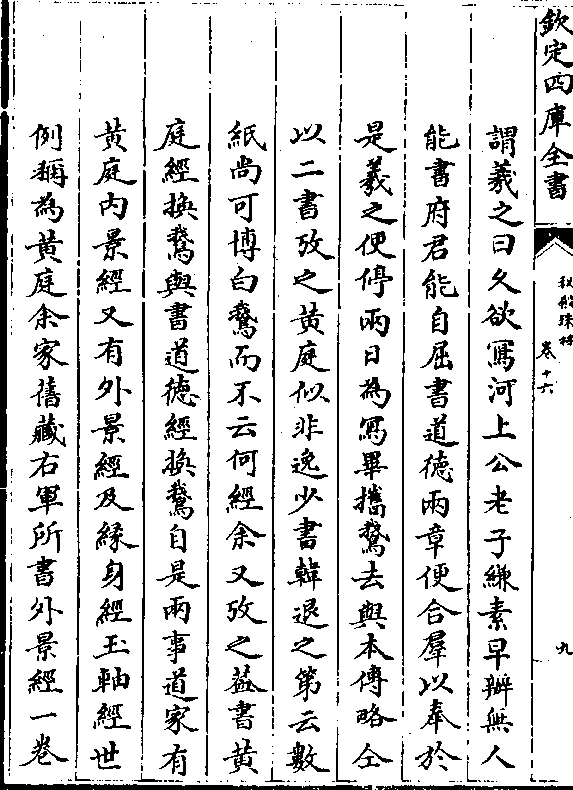 欽定四庫全書
卷十六
九
謂羲之曰久欲寫河上公老子縑素早辦無人
能書府君能自屈書道德兩章便合羣以奉於
是羲之便停兩日為寫畢攜鵞去與本傳略仝
以二書攷之黄庭似非逸少書韓退之第云數
紙尚可博白鵞而不云何經余又攷之葢書黄
庭經換鵞與書道德經換鵞自是兩事道家有
黄庭内景經又有外景經及緣身經玉軸經世
例稱為黄庭余家舊藏右軍所書外景經一卷